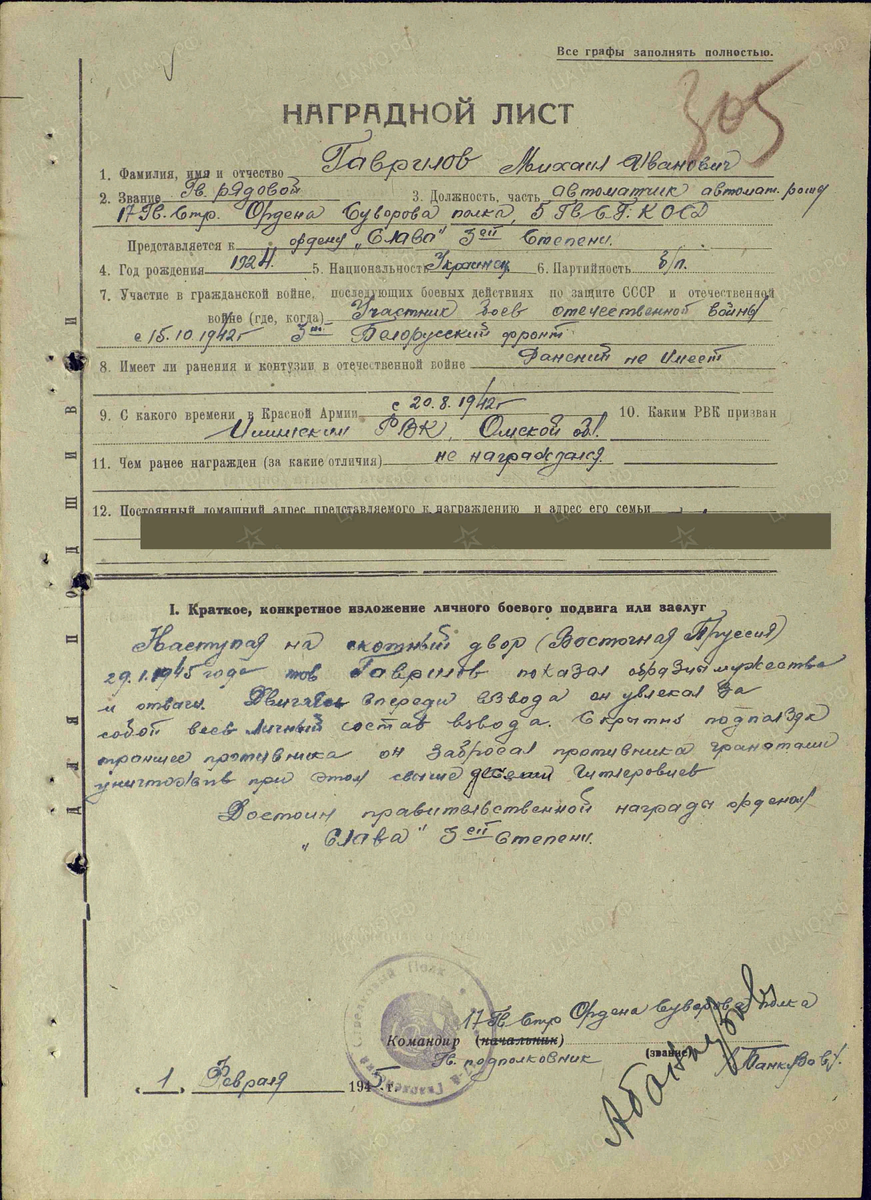 Все графы заполнять полностью.
305
НАГРАДНОЙ ЛИСТ
1. Фамилия, имя и отчество Гаврилов Михаил Иванович
2. Звание Гв. рядовой 3. Должность, часть автоматчик автомат. роты
17 Гв. Стр. Ордена Суворова полка, 5 Гв С.Г.К ОСД
Представляется к ордену „Слава" 3ей Степени.
4. Год рождения 1924. 5. Национальность Украинец 6. Партийность б/п.
7. Участие в гражданской войне, последующих боевых действиях по защите СССР и отечественной
войне (где, когда) Участник боев отечественной войны
с 15.10.1942г 3ий Белорусский фронт
8. Имеет ли ранения и контузии в отечественной войне Ранений не имеет
9. С какого времени в Красной Армии с 20.8.1942г 10. Каким РВК призван
Ишимским РВК, Омской обл.
11. Чем ранее награжден (за какие отличия) не награждался.
12. Постоянный домашний адрес представляемого к награждению и адрес его семьи
I. Краткое, конкретное изложение личного боевого подвига или заслуг
Наступая на скотный двор (Восточная Пруссия)
29.1.1945 года тов Гаврилов показал образцы мужества
и отваги. Двигаясь впереди взвода он увлекал за
собой весь личный состав взвода. Скрытно подползая к
траншее противника он забросал противника гранатами
уничтожив при этом свыше десяти гитлеровцев
Достоин правительственной награды ордена
„Слава" 3ей Степени.
17 Гв Стр Ордена Суворова полка
Командир (начальник)
Гв. подполковник (звание) /Банкузов/.
„ 1 " Февраля 1945 г.
ДЛЯ ПОДШИВКИ
ЦАМО.РФ